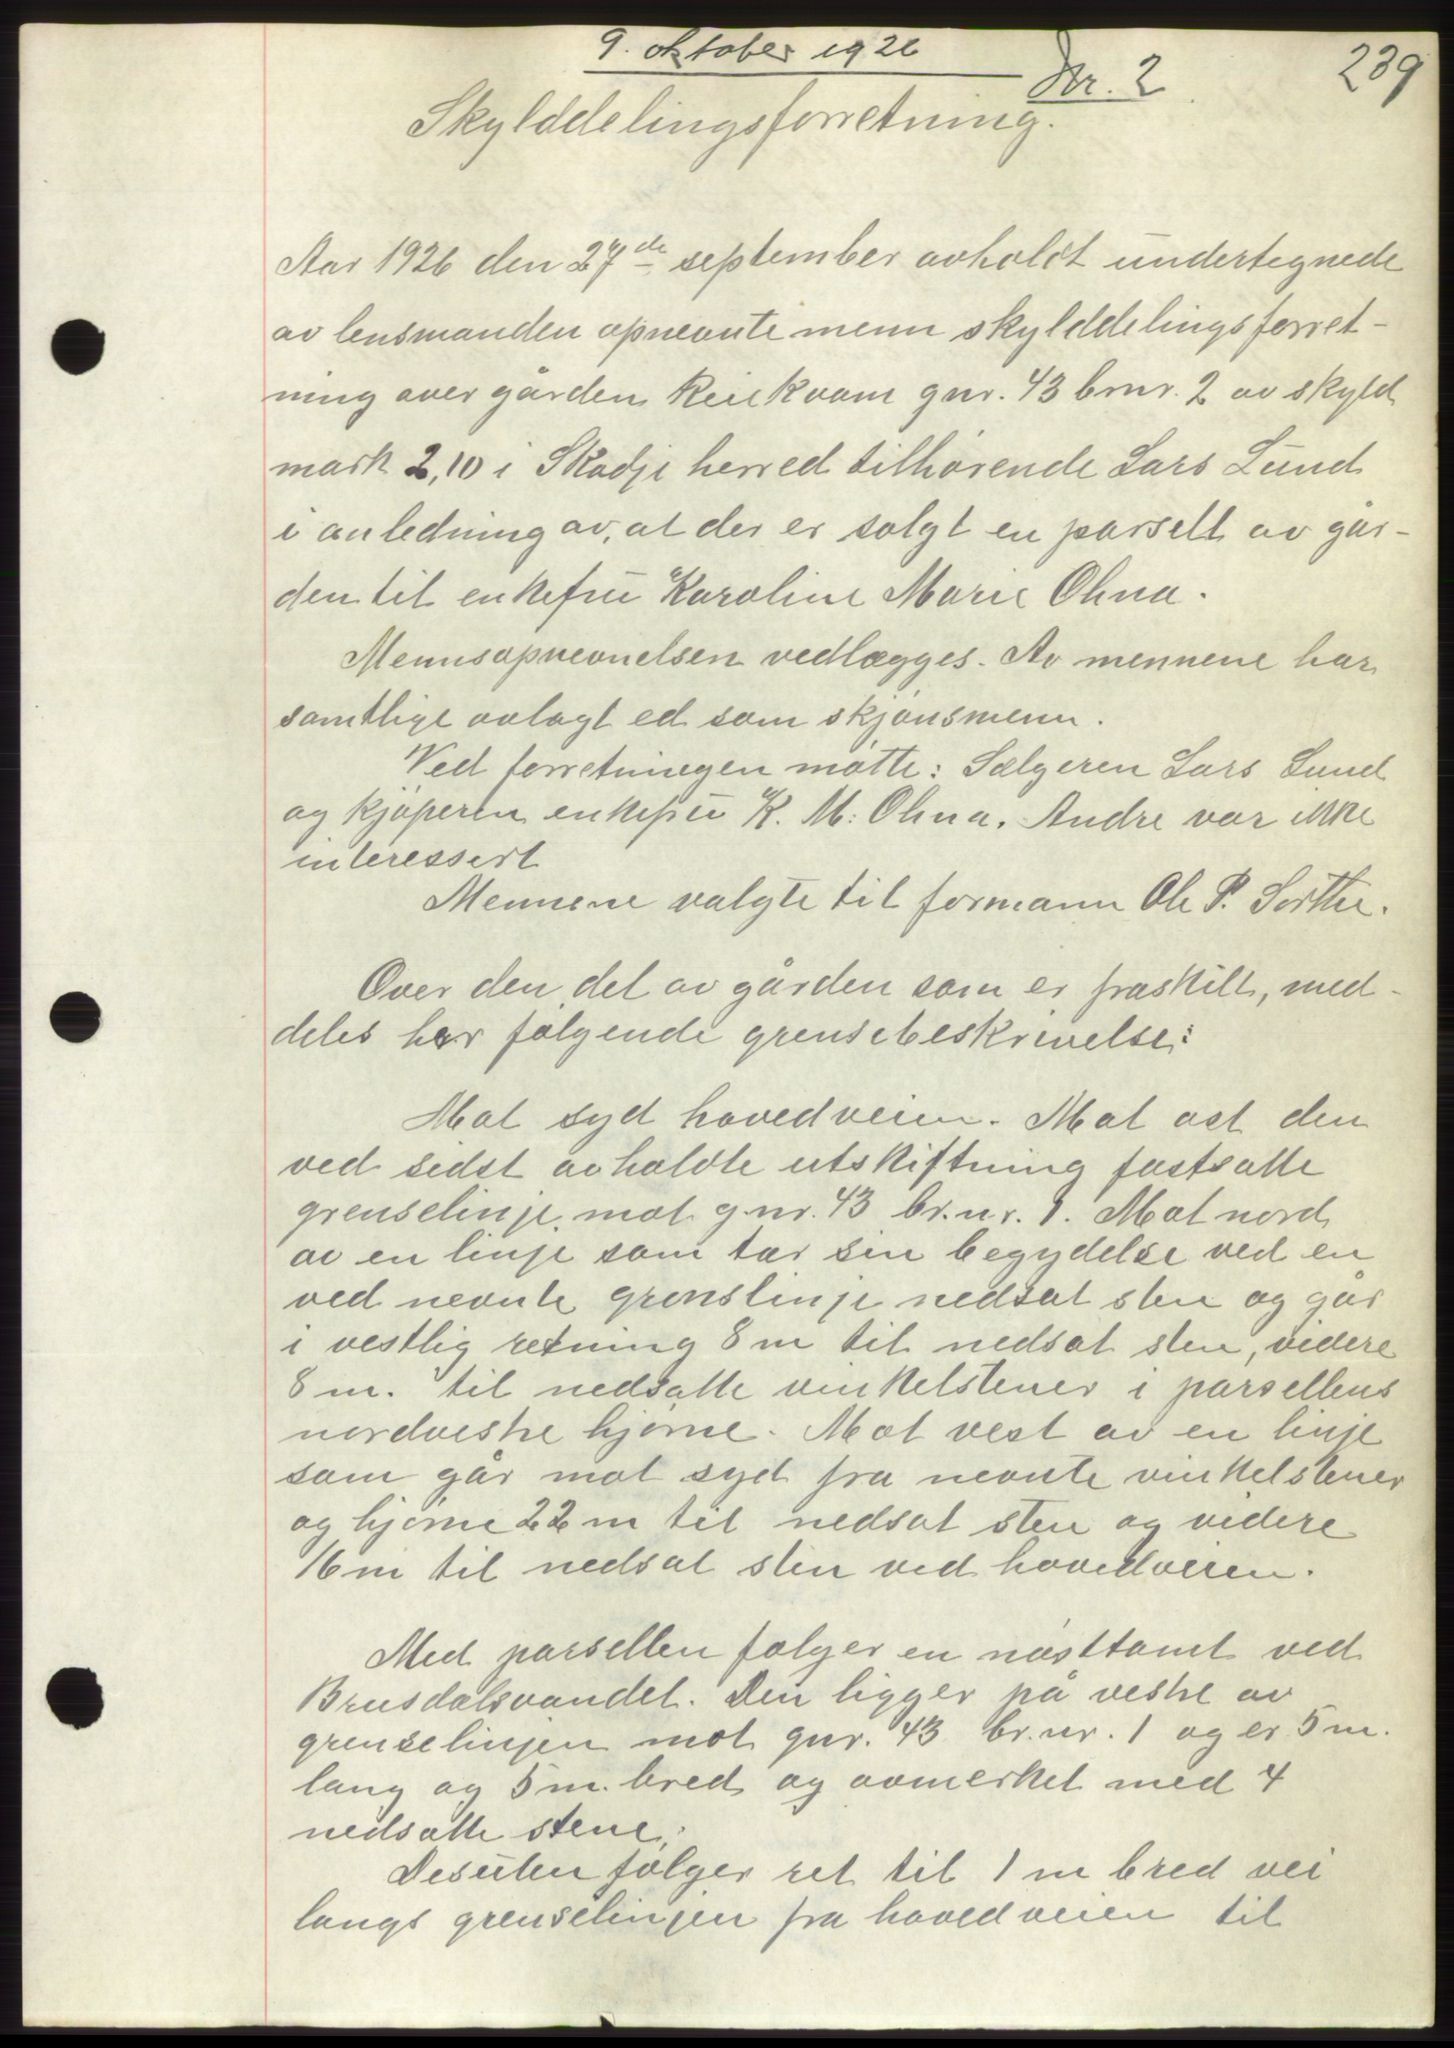 9. oktober 1926
Nr. 2
239
Skylddelingsforretning.
Aar 1926 den 27de september avholdt undertegnede
av lensmanden opnevnte menn skylddelingsforret-
ning over gården Reiekvam gnr. 43 brnr. 2 av skyld
mark 2,10 i Skodje herred tilhørende Lars Lund
i anledning av, at der er solgt en parsell av går-
den til enkefru Karoline Marie Ohna.
Mennsopnevnelsen vedlægges. Av mennene har
samtlige avlagt ed som skjønsmenn.
Ved forretningen møtte: Sælgeren Lars Lund
og kjøperen enkefru K. M. Ohna. Andre var ikke
interessert
Mennene valgte til formann Ole P. Sortte.
Over den del av gården som er fraskilt, med-
deles her følgende grensebeskrivelse:
Mot syd hovedveien. Mot øst den
ved sidst avholdte utskiftning fastsatte
grenselinje mot gnr. 43 br.nr. 1. Mot nord
av en linje som tar sin begydelse ved en
ved nevnte grenslinje nedsat sten og går
i vestlig retning 8 m til nedsat sten, videre
8 m. til nedsatte vinkelstener i parsellens
nordvestre hjørne. Mot vest av en linje
som går mot syd fra nevnte vinkelstener
og hjørne 22 m til nedsat sten og videre
16 m til nedsat sten ved hovedveien.
Med parsellen følger en nøsttomt ved
Brusdalsvandet. Den ligger på vestre av
grenselinjen mot gnr. 43 br.nr. 1 og er 5 m.
lang og 5 m. bred og avmerket med 4
nedsatte stene.
Desuten følger ret til 1 m bred vei
langs grenselinjen fra hovedveien til